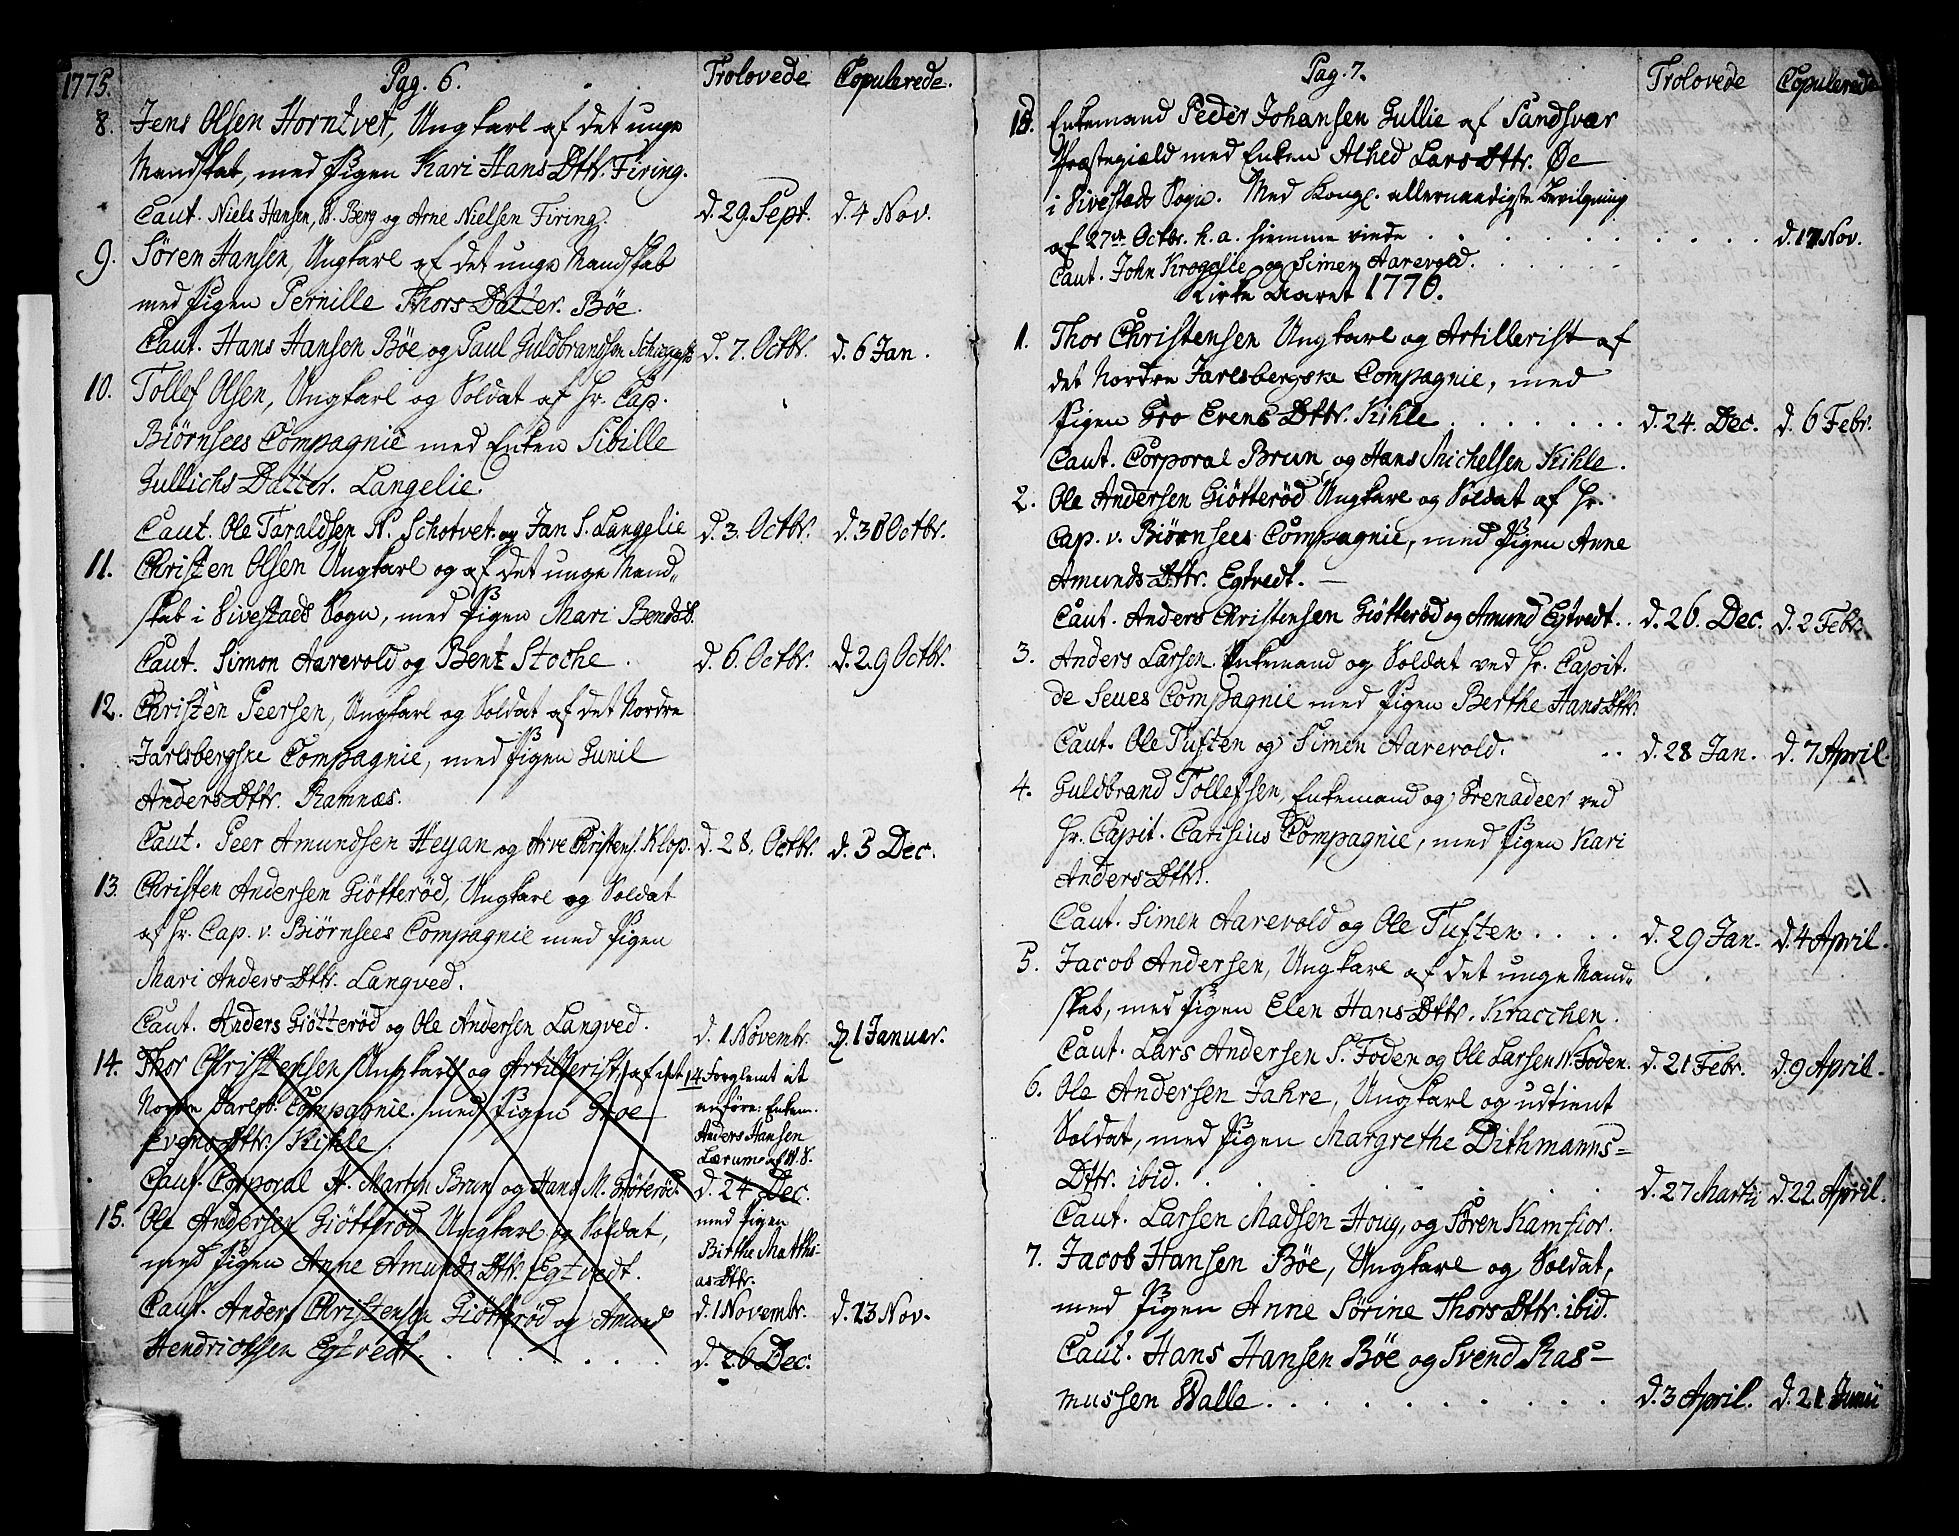 1775.
Pag. 6.
Trolovede
Copulerede.
8. Jens Olsen Horntvet, Ungkarl af det unge
Mandskab, med Pigen Kari Hans Dttr. Firing.
Caut. Niels Hansen, N. Berg og Arne Nielsen Firing. d. 29. Sept. d. 4 Nov.
9. Søren Hansen, Ungkarl af det unge Mandskab
med Pigen Pernille Thors Datter. Bøe.
Caut. Hans Hansen Bøe og Paul Guldbrandsen d. 7. Octbr. d. 6 Jan.
10. Tollef Olsen, Ungkarl og Soldat af Hr. Cap.
Biørnsees Compagnie med Enken Sibille
Gullichs Datter. Langelie.
Caut. Ole Taraldsen N. Schotvet. og Jan S. Langelie d. 3. Octbr. d. 30 Octbr.
11. Christen Olsen Ungkarl og af det unge Mand-
skab i Sivestads Sogn, med Pigen Mari Bends D.
Caut. Simon Aarevold og Bent Stoche. d. 6. Octbr. d. 29 Octbr.
12. Christen Peersen, Ungkarl og Soldat af det Nordre
Jarlsbergske Compagnie, med Pigen Gunil
Anders Dttr. Ramnæs.
Caut. Peer Amundsen Heyan og Arve Christens. Klop. d. 28. Octbr. d. 3 Dec.
13. Christen Andersen Giøtterød, Ungkarl og Soldat
af Hr. Cap. v. Biørnsees Compagnie med Pigen
Mari Anders Dttr. Langved.
Caut. Anders Giøtterød og Ole Andersen Langved. d. 1 Novembr. d. 1 Januar.
14. Thor Christensen Ungkarl og Artillerist, af det
Nordre Jarlsb. Compagnie. med Pigen Groe
Evens Dttr. Kihle.
Caut. Corporal H. Martin Brun og Hans M. d. 24 Dec.
14 Forglemt at
anføre: Enkem.
Anders Hansen
Lærum af N. S.
med Pigen
Birthe Mathi-
as Dttr.
d. 1 Novembr. d. 13 Nov.
15. Ole Andersen Giøtterød Ungkarl og Soldat,
med Pigen Anne Amunds Dttr. Egtvedt.
Caut. Anders Christensen Giøtterød og Amund
Hendrichsen Egtvedt. d. 26 Dec.
Pag. 7.
Trolovede
Copulerede
Enkemand Peder Johansen Gullie af Sandsvær
Præstegield med Enken Alhed Lars Dttr. Øe
i Sivestads Sogn. Med Kongl. allernaadigste Bevilgning
af 27de Octbr. h. a. hiemme viede d. 17 Nov.
Caut. John Krogelie og Simen Aarevold.
Kirke Aaret 1776.
1. Thor Christensen Ungkarl og Artillerist af
det Nordre Jarlsbergske Compagnie, med
Pigen Gro Evens Dttr. Kihle d. 24. Dec. d. 6 Febr.
Caut. Corporal Brun og Hans Michelsen Kihle.
2. Ole Andersen Giøtterød Ungkarl og Soldat af Hr.
Cap. v. Biørnsees Compagnie, med Pigen Anne
Amunds Dttr. Egtvedt.
Caut. Anders Christensen Giøtterød og Amund Egtvedt. d. 26. Dec. d. 2 Febr.
3. Anders Larsen Enkemand og Soldat ved Hr. Capit.
de Seues Compagnie med Pigen Berthe Hans Dttr.
Caut. Ole Tuften og Simen Aarevold. d. 28 Jan. d. 7 April.
4. Guldbrand Tollefsen, Enkemand og Grenadeer ved
Hr. Capit. Carisius Compagnie, med Pigen Kari
Anders Dttr.
Caut. Simen Aarevold og Ole Tuften d. 29 Jan. d. 4 April.
5. Jacob Andersen, Ungkarl af det unge Mand-
skab, med Pigen Elen Hans Dttr. Kracchen.
Caut. Lars Andersen S. Foden og Ole Larsen N. Foden. d. 21 Febr. d. 9 April.
6. Ole Andersen Jahre, Ungkarl og udtient
Soldat, med Pigen Margrethe Dithmanns-
Dttr. ibid. d. 27 Martii d. 22 April.
Caut. Larsen Madsen Houg, og Søren Kamfior.
7. Jacob Hansen Bøe, Ungkarl og Soldat,
med Pigen Anne Sørine Thors Dttr. ibid.
Caut. Hans Hansen Bøe og Svend Ras-
mussen Walle d. 3 April. d. 21 Junii